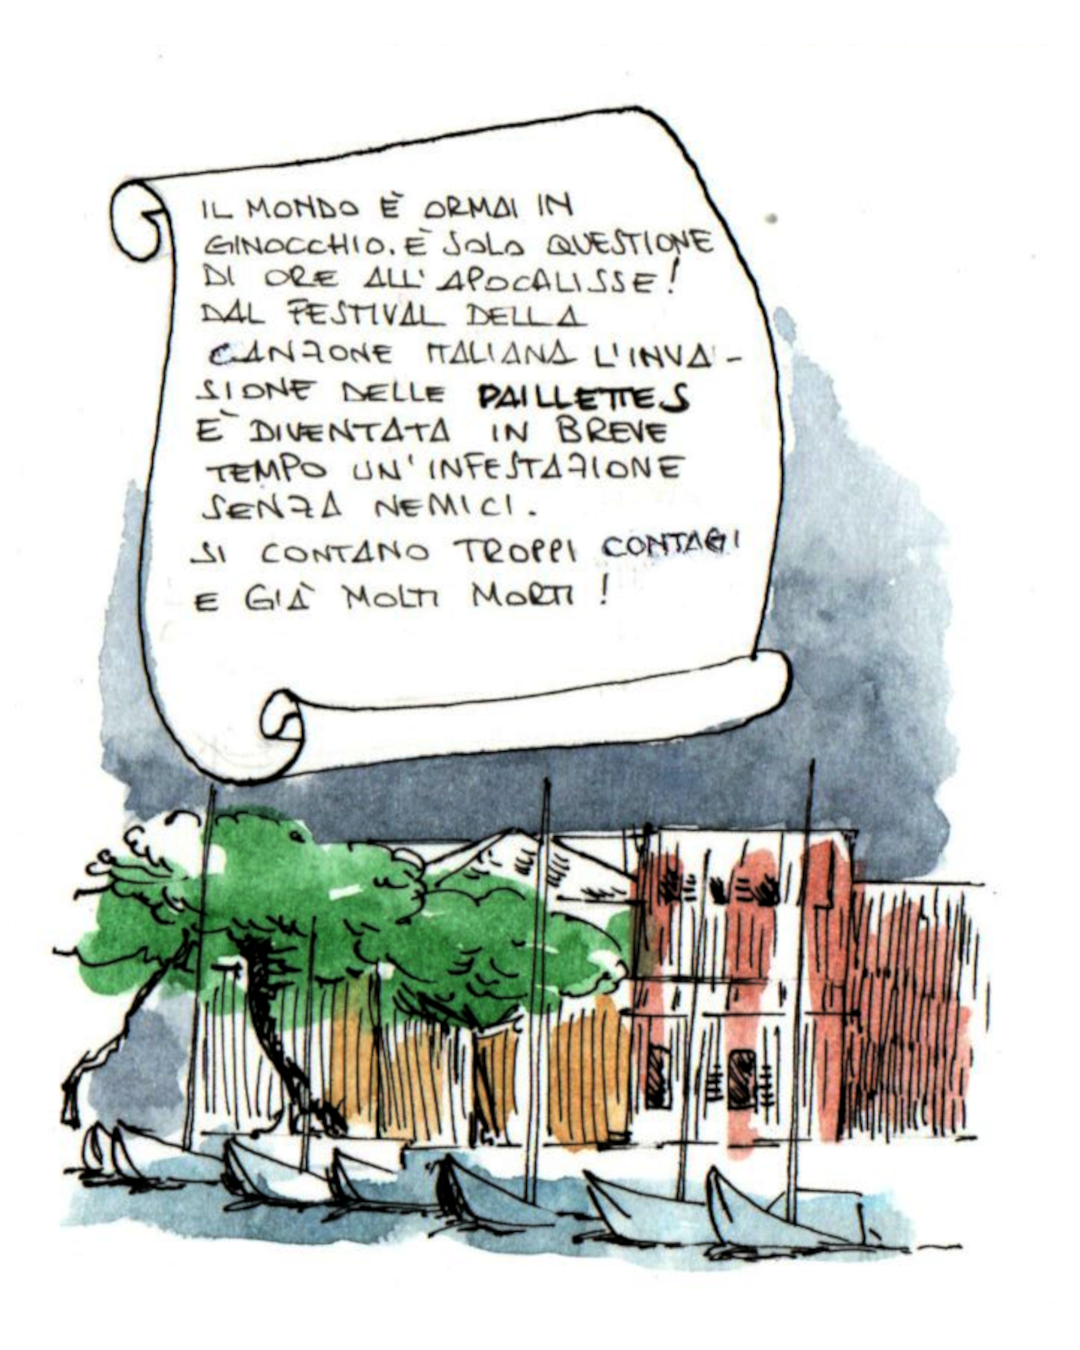 IL MONDO È ORMAI IN
GINOCCHIO. È SOLO QUESTIONE
DI ORE ALL'APOCALISSE!
DAL FESTIVAL DELLA
CANZONE ITALIANA L'INVA-
SIONE DELLE PAILLETTES
È DIVENTATA IN BREVE
TEMPO UN'INFESTAZIONE
SENZA NEMICI.
SI CONTANO TROPPI CONTAGI
E GIÀ MOLTI MORTI!